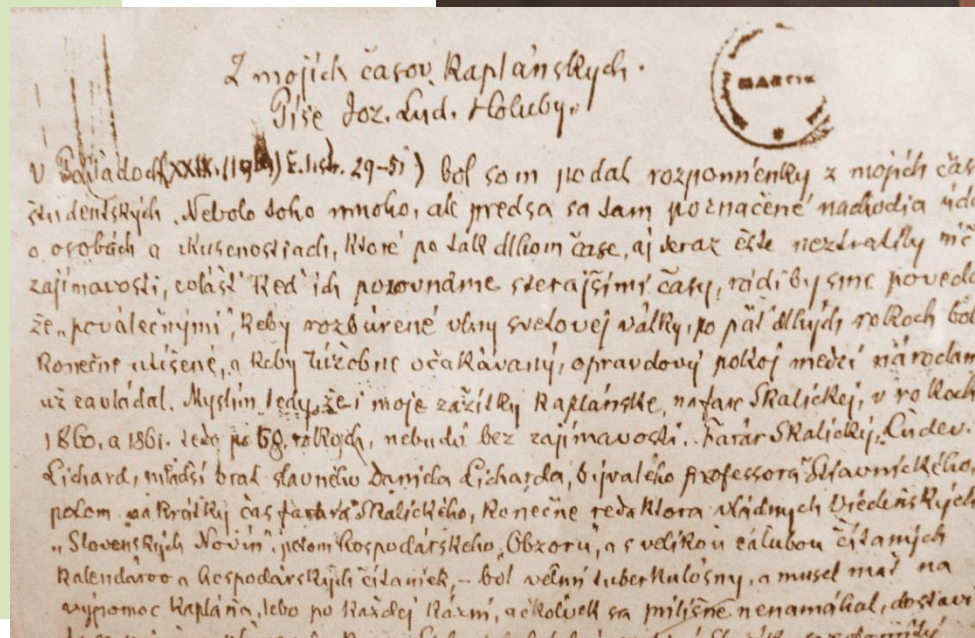 Z mojich časov kaplánskych.
Píše Joz. Ľud. Holuby.
MARTIN
V Pohľadoch (XXXIX. (19 ) č. 1. str. 29-51) bol som podal rozpomienky z mojich čas
študentských. Nebolo toho mnoho, ale predsa sa tam poznačené nachodia úda
o osobách a skusenostiach, ktoré po tak dlhom čase, aj teraz ešte neztratily nič
zajímavosti, volášť keď ich porovnáme s terajšími časy, rádi by sme poveda
že „poválečnými", keby rozbúrené vlny svetovej války, po päť dlhých rokoch bol
konečne utíšené, a keby túžobne očakávaný, opravdový pokoj medzi národam
už zavládal. Myslím tedy, že i moje zažitky kaplánske, na fare Skalickej, v rokoch
1860. a 1861. teda po 58. rokoch, nebudú bez zajímavosti. Farár Skalický, Ľudev.
Lichard, mladší brat slavného Daniela Licharda, bývalého professora Štiavnického
potom na krátky čas farára Skalického, konečne redaktora vládnych Viedeňských
„Slovenských Novín", potom hospodárskeho „Obzoru", a s velikou záľubou čítaných
kalendárov a hospodárskych čítaniek, – bol veľmi tuberkulósny, a musel mať na
výpomoc kaplána, lebo po každej kázni, ačkoľvek sa prílišne nenamáhal, dostavi